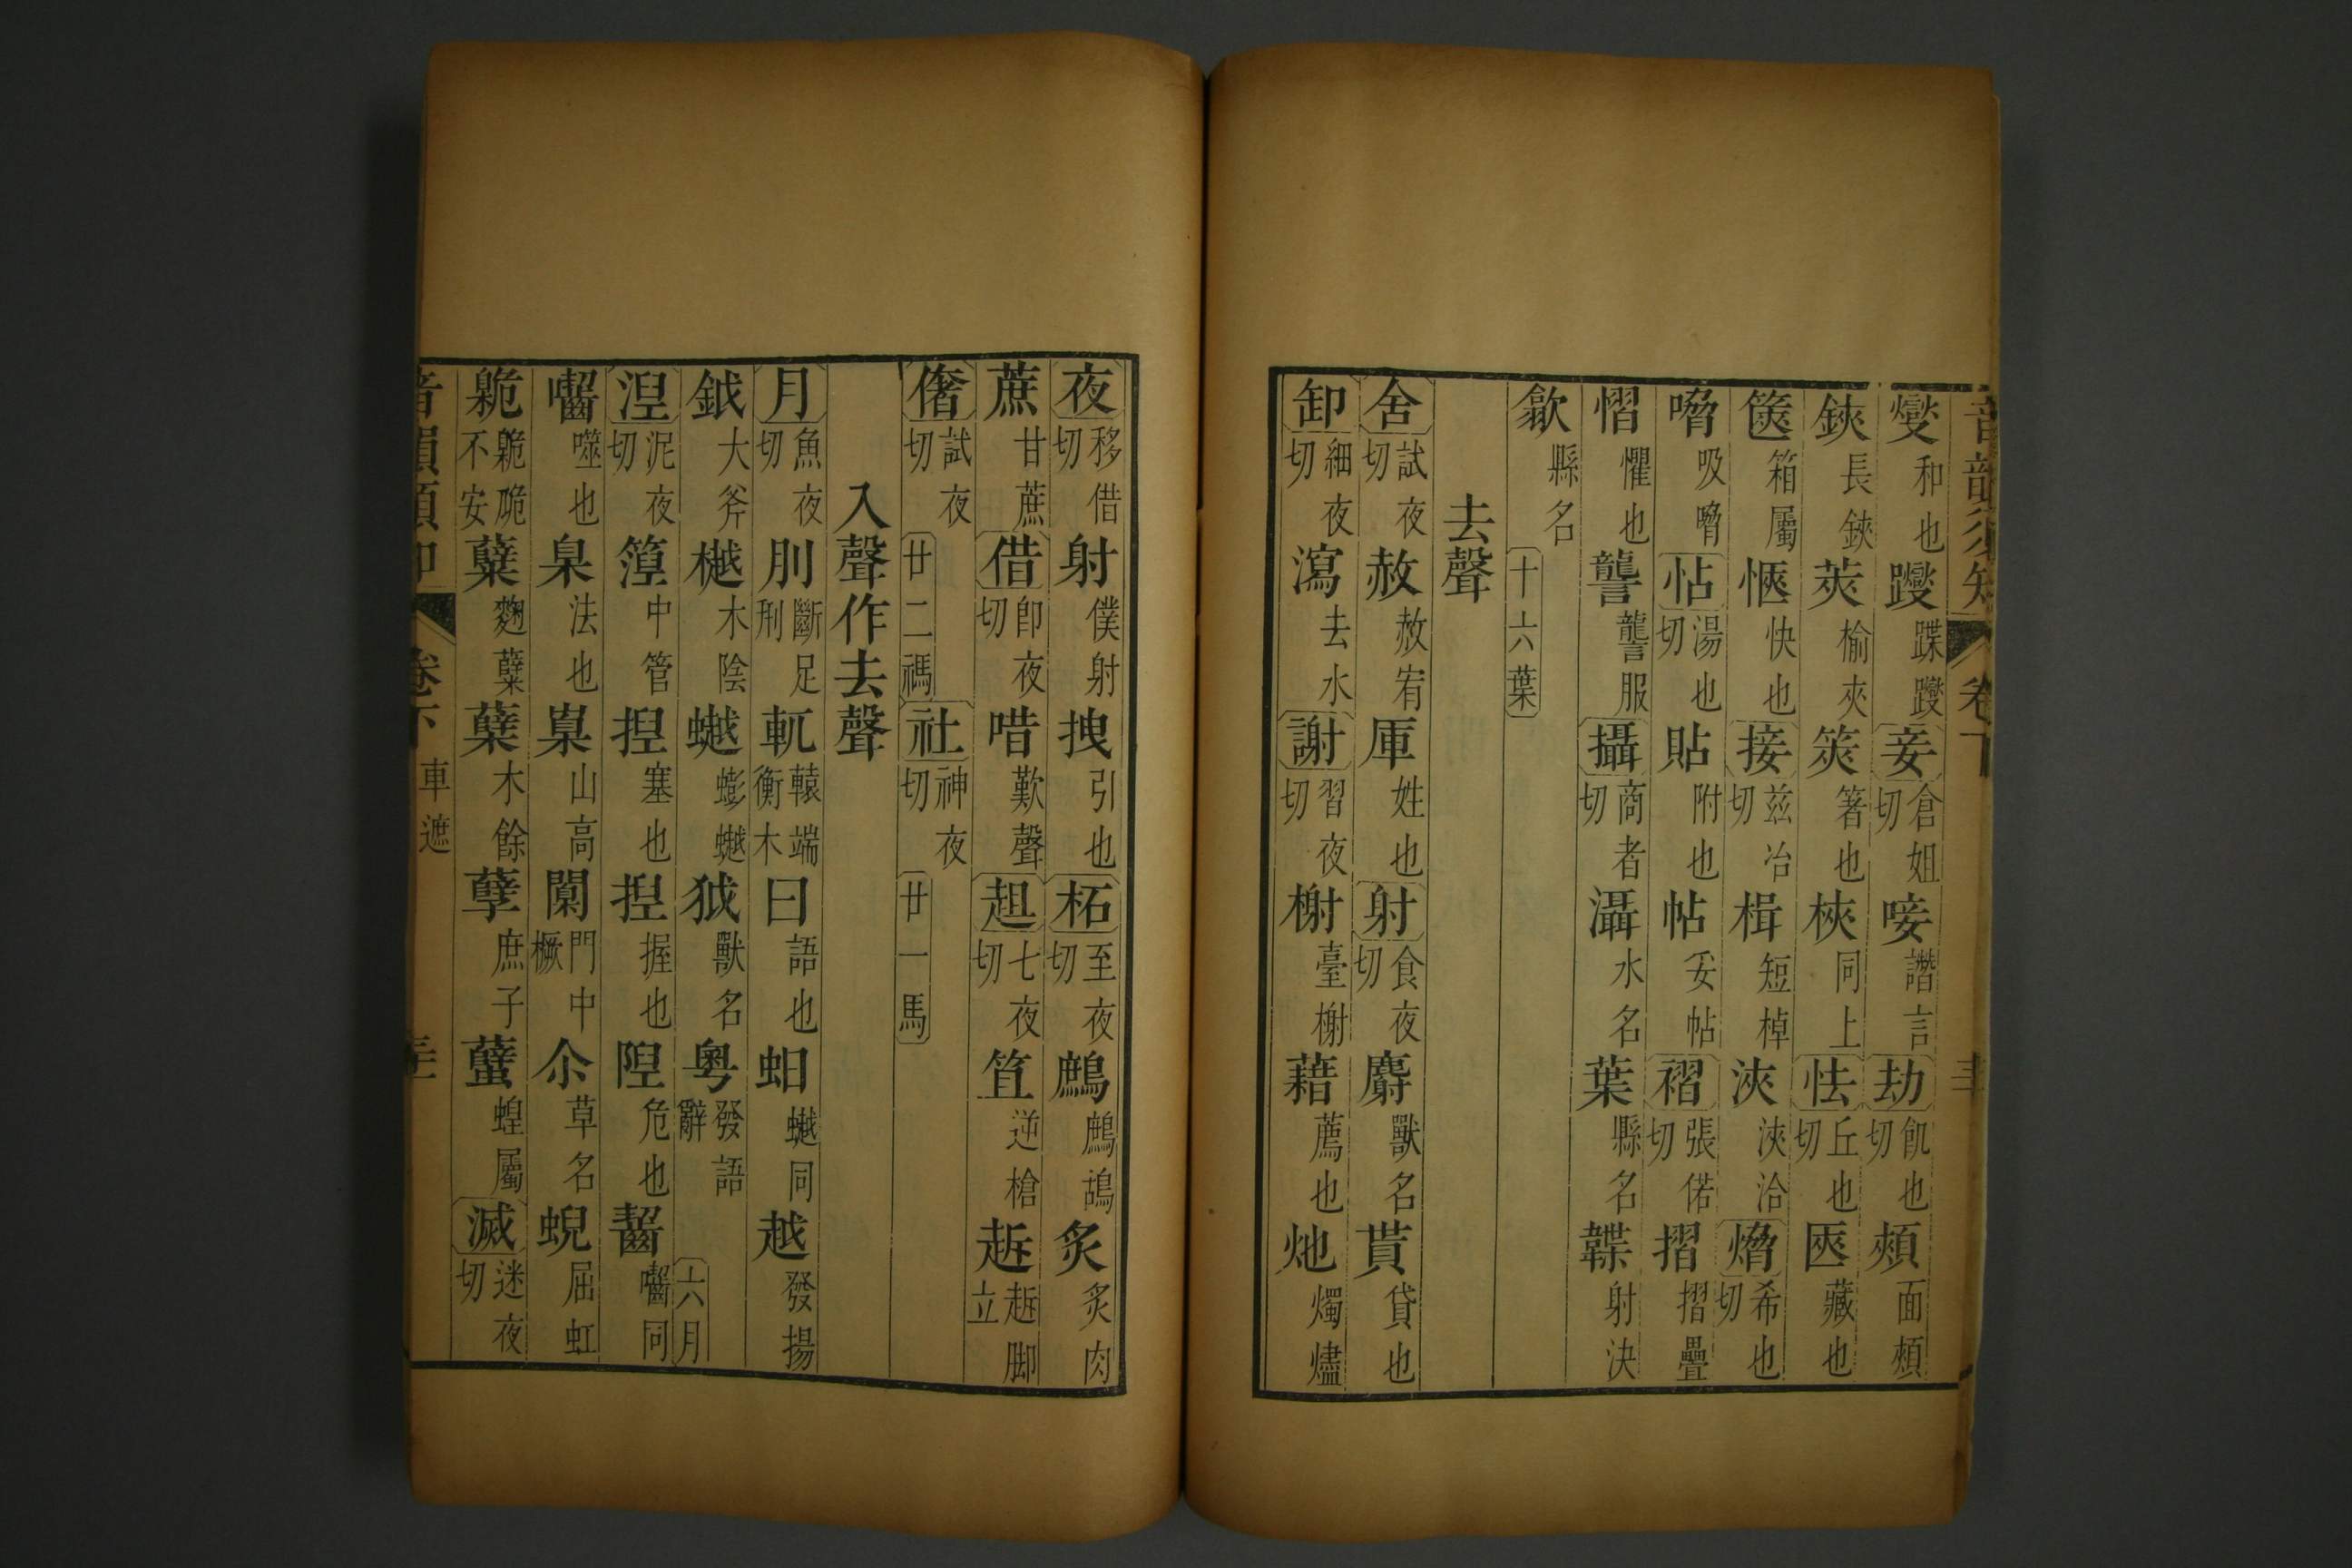 燮和也躞蹀躞妾倉姐切唼譖言劫飢也切頰面頰
鋏長鋏莢榆夾筴箸也梜同上怯丘也切匧藏也
篋箱屬愜快也接兹冶切楫短棹浹浹洽熁希也切
嗋吸嗋怗湯也切貼附也帖妥帖褶張偌切摺摺疊
慴懼也讋讋服攝商者切灄水名葉縣名韘射決
歙縣名十六葉
去聲
舍試夜切赦赦宥厙姓也射食夜切麝獸名貰貸也
卸細夜切瀉去水謝習夜切榭臺榭藉薦也灺燭燼
夜移借切射僕射拽引也柘至夜切鷓鷓鴣炙炙肉
蔗甘蔗借卽夜切唶歎聲趄七夜切笡逆槍趚立脚
偖試夜切廿二禡社神夜切廿一馬
入聲作去聲
月魚夜切刖斷足刑軏轅端衡木曰語也蚎䗊同越發揚
鉞大斧樾木陰䗊蟛䗊狘獸名粤發語辭六月
涅泥夜切篞中管揑塞也揑握也隉危也齧囓同
囓噬也臬法也嵲山高闑門中橛尒草名蜺屈虹
臲臲卼不安糵麴糵櫱木餘孽庶子蠥蝗屬滅迷夜切
卷下 車遮